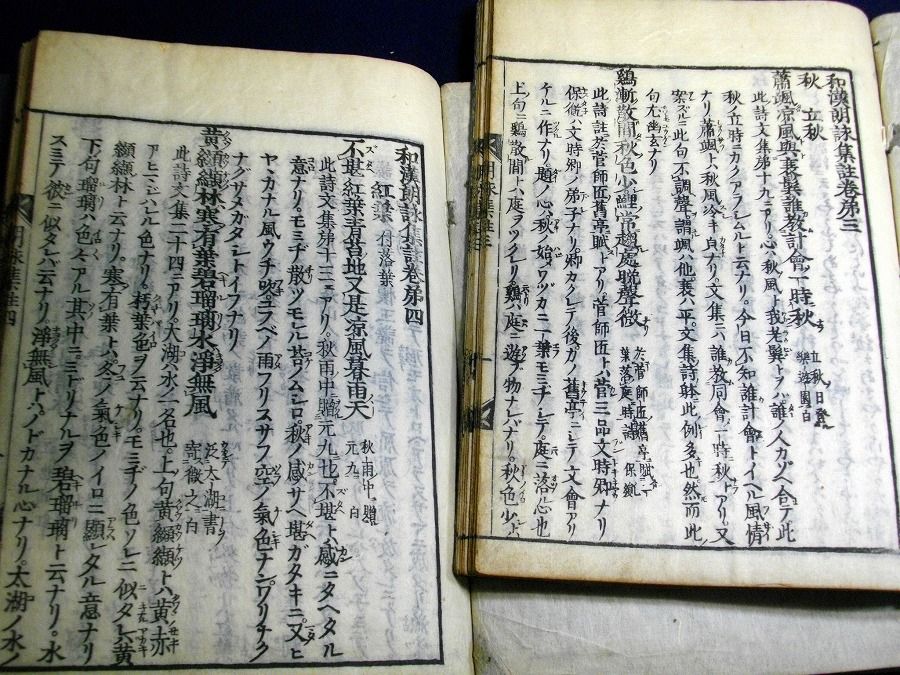 和漢朗詠集註卷第三
秋　立秋
蕭颯凉風與衰鬢誰教計會一時秋　立秋日登樂遊園白
此詩文集第十九ニアリ心ハ秋風ト我老鬢トヲハ誰人カゾヘ合テ此
秋ノ立時ニカクアラシムルト云ナリ今日不知誰計會トイヘル風情
ナリ蕭颯トハ秋風冷キ皃ナリ文集ニハ誰教同會一時秋トアリ又
案ズルニ此句不調聲謂颯ハ他衰ハ平文集詩躰此例多也然而此
句尤幽玄ナリ
鷄漸散間秋色少鯉常趨處晩聲微　於菅師匠舊亭賦一葉落庭時詩　保胤
此詩註於菅師匠舊亭賦トアリ菅師匠トハ菅三品文時卿ナリ
保胤ハ文時卿ノ弟子ナリ卿カクレテ後ガノ舊亭ニシテ文會アリ
ケルニ作ナリ題ノ心ハ秋ノ始メワツカニ一葉モミヂシテ庭ニ落心也
上句ニ鷄散間トハ庭ヲツクレリ鷄ハ庭ニ遊ブ物ナレバナリ秋色少ト
和漢朗詠集註卷第四
紅葉　付落葉
不堪紅葉青苔地又是凉風暮雨天　秋雨中贈元九　白
此詩文集第十三ニアリ秋雨中ニ贈元九也不堪トハ感ニタヘタル
意ナリモミヂ散ツモレル苔ノムシロ秋ノ感サヘ堪ガタキニ又ヒ
ヤヽカナル風ウチ吹ユフベノ雨フリスサフ空ノ氣色ナンワリナク
ナグサメガタシトイフナリ
黄纐纈林寒有葉碧瑠璃水淨無風　泛太湖書寄微之　白
此詩文集二十四ニアリ大湖ハ水ノ名也上句黄纐纈トハ黄ト赤
アヒマジハレル色ナリ朽葉色ヲ云ナリモミヂノ色ソレニ似タレバ黄
纐纈林ト云ナリ寒有葉トハ冬ノ氣色ノイロニ顯レタル意ナリ
下句瑠璃ハ色〻アル其中ニミドリナルヲ碧瑠璃ト云ナリ水
スミテ彼ニ似タレバ云ナリ淨無風トハノドカナル心ナリ太湖ノ水ノ